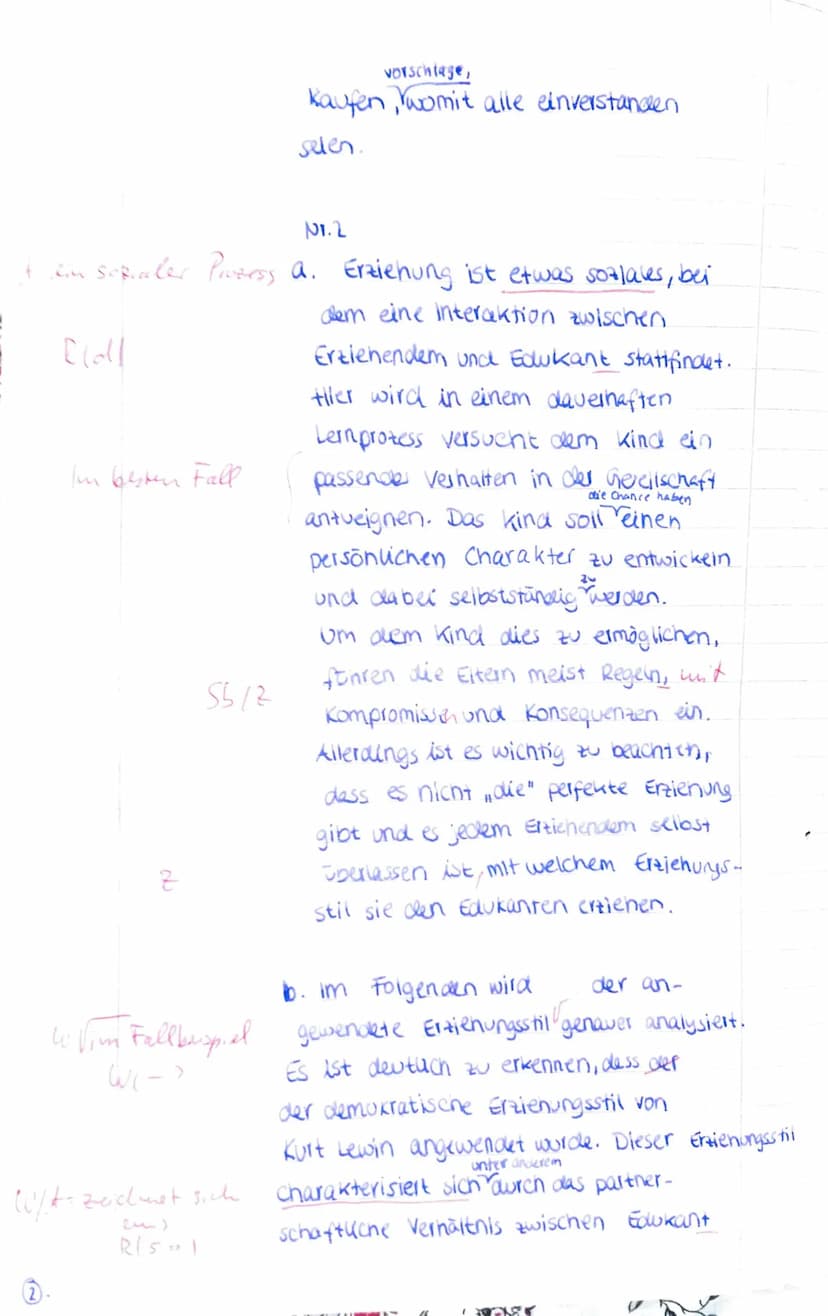 vorschlage,
Kaufen, womit alle einverstanden
seien.
Nr. 2
+ ein sozialer Prozess a. Erziehung ist etwas soziales, bei
dem eine Interaktion zwischen
Erziehendem und Edukant stattfindet.
Hier wird in einem dauerhaften
Lernprozess versucht dem Kind ein
Im besten Fall passendes Verhalten in der Gesellschaft
die Chance haben
anzueignen. Das Kind soll einen
persönlichen Charakter zu entwickeln
zu
und dabei selbstständig werden.
Um dem Kind dies zu ermöglichen,
führen die Eltern meist Regeln, mit
Sb/Z Kompromissen und Konsequenzen ein.
Allerdings ist es wichtig zu beachten,
dass es nicht „die" perfekte Erziehung
gibt und es jedem Erziehendem selbst
Z überlassen ist, mit welchem Erziehungs-
stil sie den Edukanten erziehen.
b. Im Folgenden wird der an-
im Fallbeispiel gewendete Erziehungsstil genauer analysiert.
Es ist deutlich zu erkennen, dass der
der demokratische Erziehungsstil von
Kurt Lewin angewendet wurde. Dieser Erziehungsstil
unter anderem
zeichnet sich charakterisiert sich durch das partner-
schaftliche Verhältnis zwischen Edukant
2.